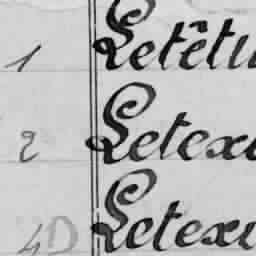 1 Letêtu
2 Letex
4D Letex